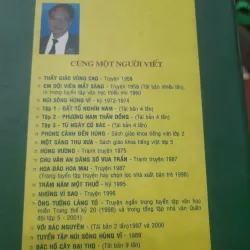 CÙNG MỘT NGƯỜI VIẾT
THẦY GIÁO VÙNG CAO - Truyện 1956
EM ĐÔI VIÊN MẮT SÁNG - Truyện 1959 (Tái bản nhiều lần,
in trong tuyển tập văn học thiếu nhi 1960)
NÚI SÔNG HÙNG VĨ - Ký 1972-1974
Tập 1 - ĐẤT TỔ NGHÌN NĂM - (Tái bản 4 lần)
Tập 2 - PHƯƠNG NAM THÂN ĐỒNG - (Tái bản 4 lần)
Tập 3 - TỪ NGÀY CÓ BÁC - (Tái bản 4 lần)
PHONG CẢNH ĐỀN HÙNG - Sách giáo khoa tiếng việt tập 2
MỘT SÁNG THU XƯA - Sách giáo khoa tiếng việt tập 5
HÙNG VƯƠNG - Tranh truyện 1975
CHU VĂN AN DÂNG SỚ VUA TRẦN - Tranh truyện 1987
HOA ĐÀO HOA MAI - Truyện 1987
(Trong tuyển tập truyện hay chọn lọc nhà xuất bản trẻ 1998)
TRĂM NĂM MỘT THUỞ - Ký 1995
NHỮNG VÌ SAO - Truyện 1996
ÔNG TƯỚNG LÀNG TÔ - Truyện ngắn trong tuyển tập văn học
miền Trung thế kỷ 20 (1998) và trong tổng tập nhà văn quân
đội tập 5 - 2001)
VỚI BÁC NGUYÊN - (Tái bản 2 lần)1997 và 2000
TUYỂN TẬP NÚI SÔNG HÙNG VĨ - 1989
BÁC HỒ CÂY ĐẠI THỌ - (Tái bản